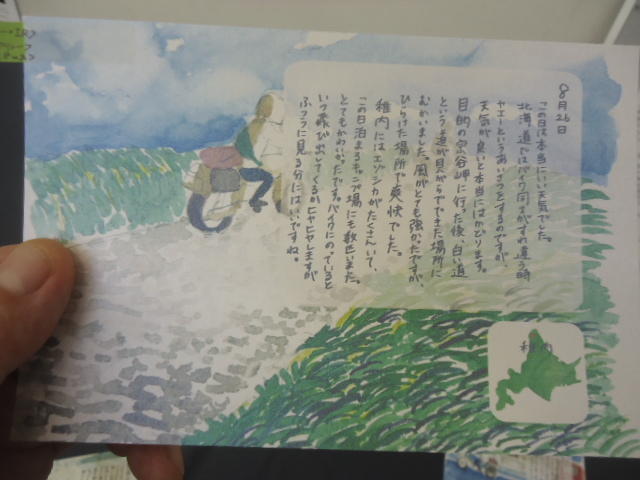 8月26日
この日は本当にいい天気でした。
北海道ではバイク同士がすれ違う時
ヤエーというあいさつをするのですが、
天気が良いと本当にはかどります。
目的の宗谷岬に行った後、白い道
という道が貝がらでできた場所に
むかいました。風がとても強かったですが、
ひらけた場所で爽快でした。
稚内にはエゾシカがたくさんいて、
この日泊まるキャンプ場にも数匹いました。
とてもかわいかったです。バイクにのっていると
いつ飛び出してくるかヒヤヒヤしますが
ふつうに見る分にはいいですね。
稚内